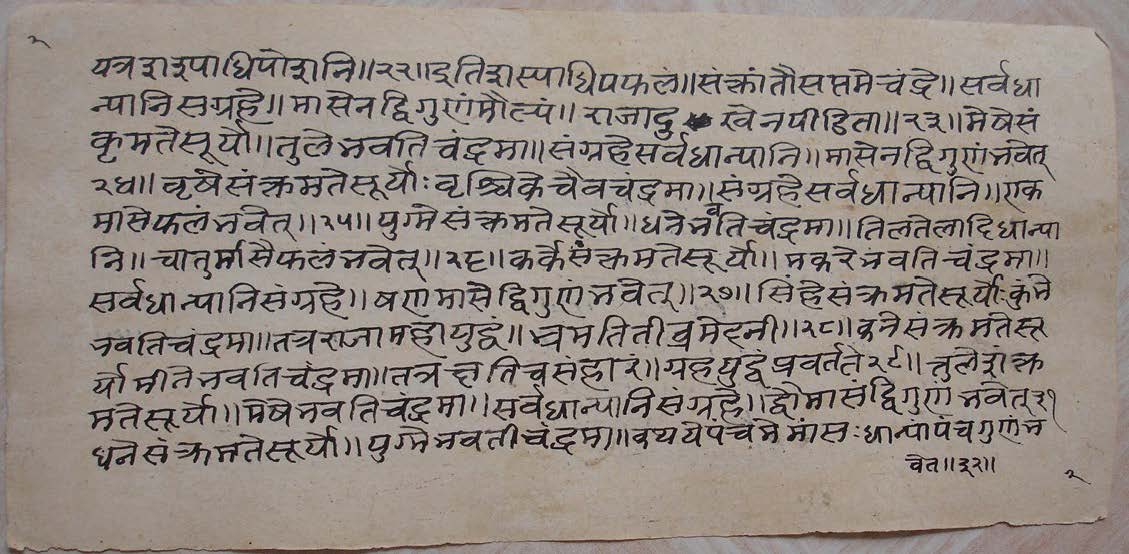 २
यत्र शश्पाधिपोशनि॥२२॥इतिशस्पाधिपफलं॥संक्रांतौसप्तमेचंद्रे॥सर्वधा
न्पानिसग्रहे॥मासेनद्विगुणंमौल्पं॥राजादु खेनपीडिता॥२३॥मेषेसं
कृमतेसूर्यो॥तुलेभवतिचंद्रमा॥संग्रहेसर्वधान्पानि॥मासेनद्विगुणंभवेत्
२४॥वृषेसंक्रमतेसूर्योःवृश्चिकेचैवचंद्रमा॥संग्रहेसर्वधान्पानि॥एक
मासेफलंभवेत्॥२५॥युग्मेसंक्रमतेसूर्यो॥धनेभवतिचंद्रमा॥तिलतेलादिधान्पा
नि॥चातुर्मासैफलंभवेत्॥२६॥कर्केसंक्रमतेसूर्यो॥मकरेभवतिचंद्रमा॥
सर्वधान्पानिसंग्रहे॥षण्मासैद्विगुणंभवेत्॥२७॥सिंहेसंक्रमतेसूर्योःकुंभे
भवतिचंद्रमा॥तत्रराजामहायुद्धं॥भ्रमतितीव्रमेदनी॥२८॥कनेसंक्रमतेसू
र्योमीनेभवतिचंद्रमा॥तत्र संहारं॥ग्रहयुद्धंप्रवर्तते२९॥तुलेशंक्र
मतेसूर्यो॥मेषेभवतिचंद्रमा॥सर्वधान्पानिसग्रहे॥द्वौमासंद्विगुणंभवेत्३१
धनेसंक्रमतेसूर्यो॥युग्मेभवतीचंद्रमा॥ पंचमेमासःधान्पांपंचगुणंभ
वेत॥३२॥
२